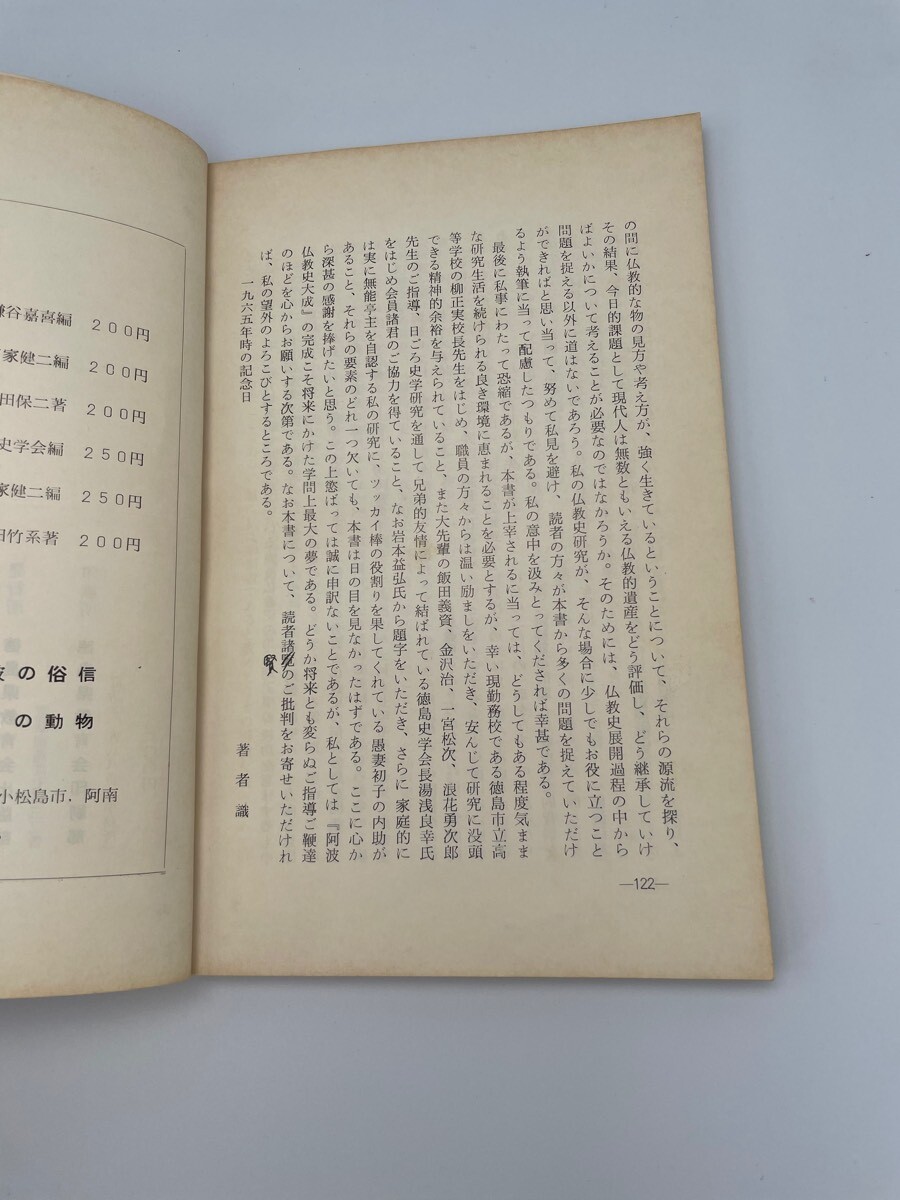 の間に仏教的な物の見方や考え方が、強く生きているということについて、それらの源流を探り、
その結果、今日的課題として現代人は無数ともいえる仏教的遺産をどう評価し、どう継承していけ
ばよいかについて考えることが必要なのではなかろうか。そのためには、仏教史展開過程の中から
問題を捉える以外に道はないであろう。私の仏教史研究が、そんな場合に少しでもお役に立つこと
ができればと思い当って、努めて私見を避け、読者の方々が本書から多くの問題を捉えていただけ
るよう執筆に当って配慮したつもりである。私の意中を汲みとってくだされば幸甚である。
最後に私事にわたって恐縮であるが、本書が上宰されるに当っては、どうしてもある程度気まま
な研究生活を続けられる良き環境に恵まれることを必要とするが、幸い現勤務校である徳島市立高
等学校の柳正実校長先生をはじめ、職員の方々からは温い励ましをいただき、安んじて研究に没頭
できる精神的余裕を与えられていること、また大先輩の飯田義資、金沢治、一宮松次、浪花勇次郎
先生のご指導、日ごろ史学研究を通して兄弟的友情によって結ばれている徳島史学会長湯浅良幸氏
をはじめ会員諸君のご協力を得ていること、なお岩本益弘氏から題字をいただき、さらに家庭的に
は実に無能亭主を自認する私の研究に、ツッカイ棒の役割りを果してくれている愚妻初子の内助が
あること、それらの要素のどれ一つ欠いても、本書は日の目を見なかったはずである。ここに心か
ら深甚の感謝を捧げたいと思う。この上慾ばっては誠に申訳ないことであるが、私としては『阿波
仏教史大成』の完成こそ将来にかけた学問上最大の夢である。どうか将来とも変らぬご指導ご鞭達
のほどを心からお願いする次第である。なお本書について、読者諸賢のご批判をお寄せいただけれ
ば、私の望外のよろこびとするところである。
一九六五年時の記念日
著者識
―122―
谷嘉喜編 200円
家健二編 200円
田保二著 200円
史学会編 250円
家健二編 250円
田竹系著 200円
の俗信
の動物
小松島市．阿南